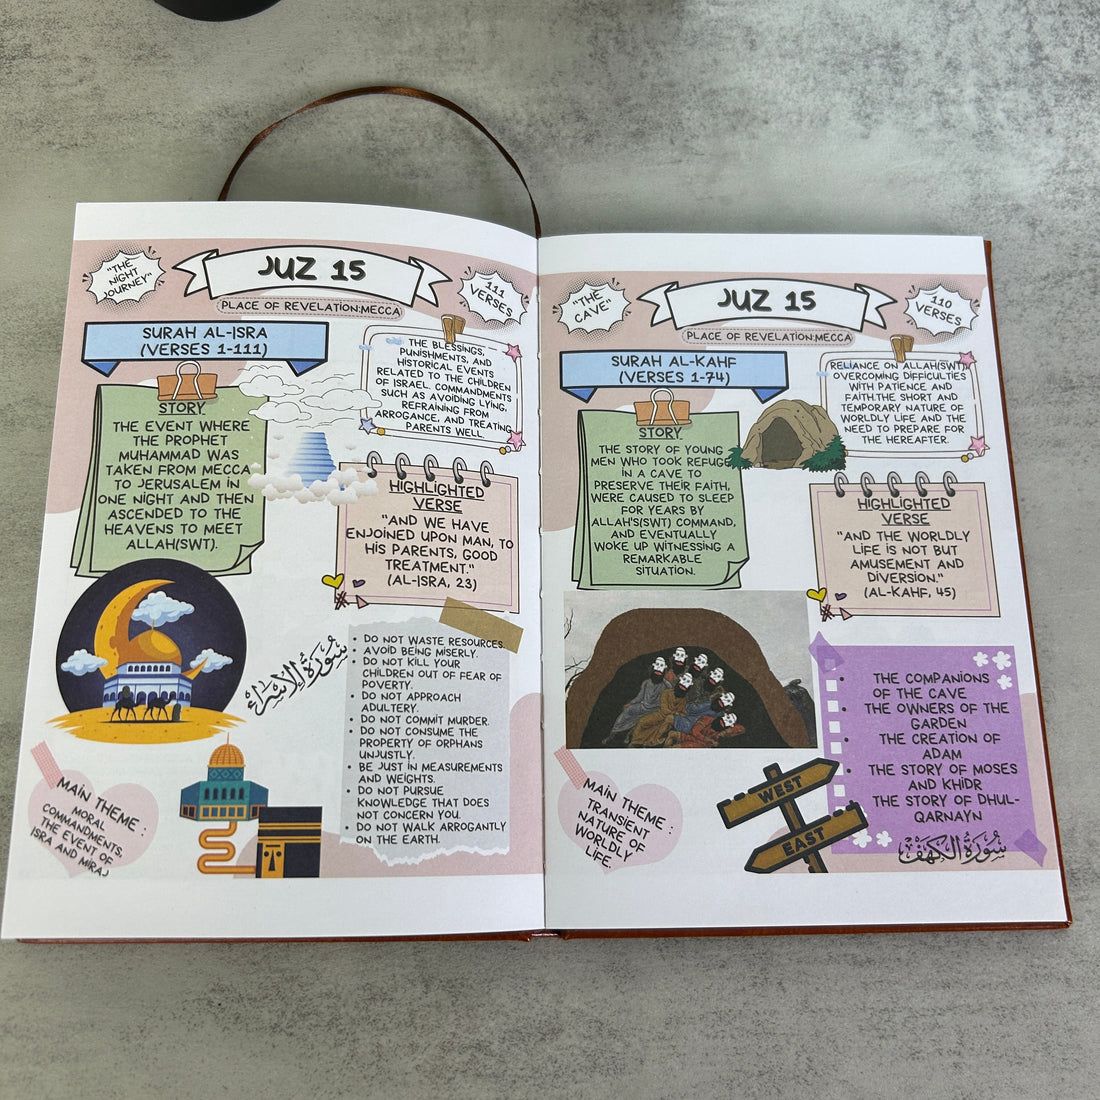 "THE
NIGHT
JOURNEY"
JUZ 15
111
VERSES
PLACE OF REVELATION:MECCA
SURAH AL-ISRA
(VERSES 1-111)
STORY
THE EVENT WHERE
THE PROPHET
MUHAMMAD WAS
TAKEN FROM MECCA
TO JERUSALEM IN
ONE NIGHT AND THEN
ASCENDED TO THE
HEAVENS TO MEET
ALLAH(SWT).
THE BLESSINGS,
PUNISHMENTS, AND
HISTORICAL EVENTS
RELATED TO THE CHILDREN
OF ISRAEL. COMMANDMENTS
SUCH AS AVOIDING LYING,
REFRAINING FROM
ARROGANCE, AND TREATING
PARENTS WELL.
HIGHLIGHTED
VERSE
"AND WE HAVE
ENJOINED UPON MAN, TO
HIS PARENTS, GOOD
TREATMENT."
(AL-ISRA, 23)
سُورَةُ الإِسْرَاء
• DO NOT WASTE RESOURCES.
AVOID BEING MISERLY.
• DO NOT KILL YOUR
CHILDREN OUT OF FEAR OF
POVERTY.
• DO NOT APPROACH
ADULTERY.
• DO NOT COMMIT MURDER.
• DO NOT CONSUME THE
PROPERTY OF ORPHANS
UNJUSTLY.
• BE JUST IN MEASUREMENTS
AND WEIGHTS.
• DO NOT PURSUE
KNOWLEDGE THAT DOES
NOT CONCERN YOU.
• DO NOT WALK ARROGANTLY
ON THE EARTH.
MAIN THEME :
MORAL
COMMANDMENTS,
THE EVENT OF
ISRA AND MIRAJ
"THE
CAVE"
JUZ 15
110
VERSES
PLACE OF REVELATION:MECCA
SURAH AL-KAHF
(VERSES 1-74)
STORY
THE STORY OF YOUNG
MEN WHO TOOK REFUGE
IN A CAVE TO
PRESERVE THEIR FAITH,
WERE CAUSED TO SLEEP
FOR YEARS BY
ALLAH'S(SWT) COMMAND,
AND EVENTUALLY
WOKE UP WITNESSING A
REMARKABLE
SITUATION.
RELIANCE ON ALLAH(SWT),
OVERCOMING DIFFICULTIES
WITH PATIENCE AND
FAITH.THE SHORT AND
TEMPORARY NATURE OF
WORLDLY LIFE AND THE
NEED TO PREPARE FOR
THE HEREAFTER.
HIGHLIGHTED
VERSE
"AND THE WORLDLY
LIFE IS NOT BUT
AMUSEMENT AND
DIVERSION."
(AL-KAHF, 45)
• THE COMPANIONS
OF THE CAVE
• THE OWNERS OF THE
GARDEN
• THE CREATION OF
ADAM
• THE STORY OF MOSES
AND KHIDR
• THE STORY OF DHUL-
QARNAYN
سُورَةُ الكَهْفِ
MAIN THEME :
TRANSIENT
NATURE OF
WORLDLY
LIFE.
WEST
EAST